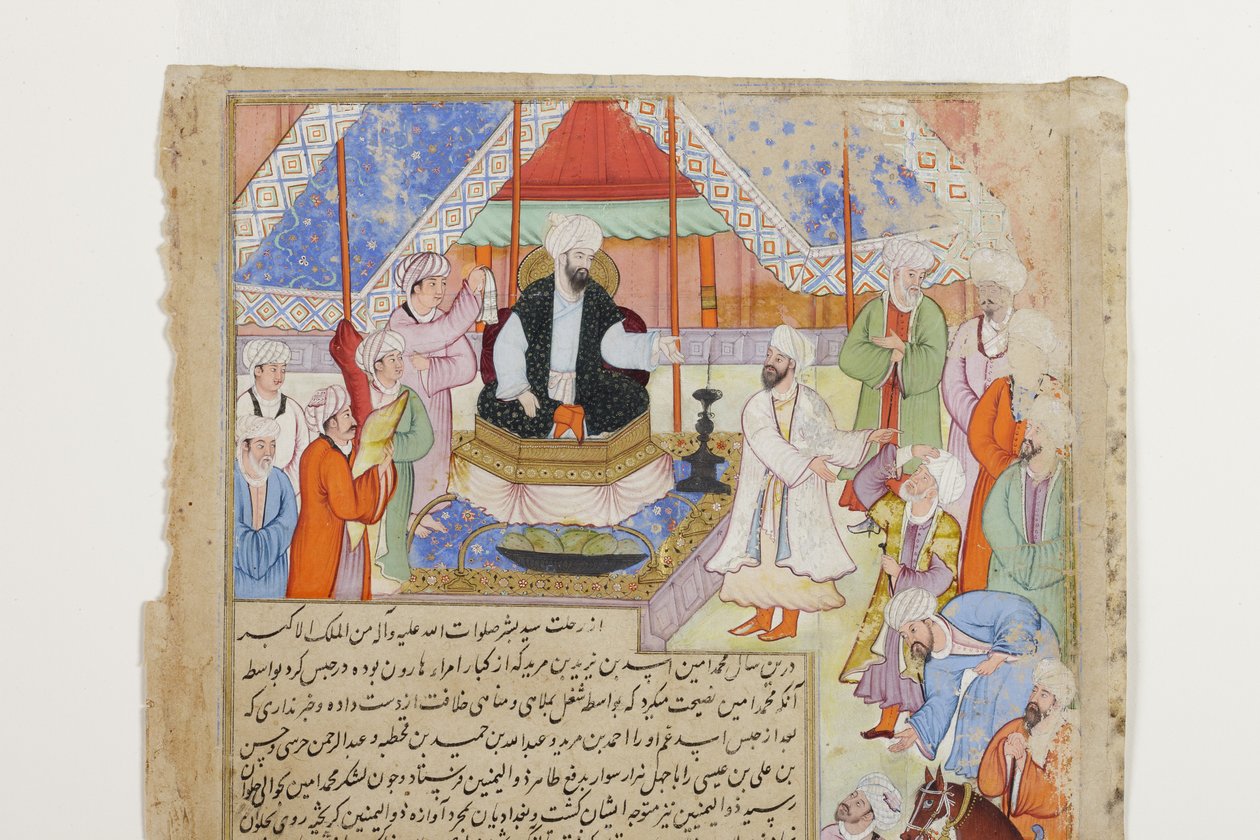 از رحلت سید بشر صلوات الله علیه وآله من الملک الاکبر
درین سال محمد امین اسد بن یزید بن مزید که از کبار امراء هارون بوده در حبس کرد بواسطه
آنکه محمد امین نصیحت میکرد که بواسطه شغل بملاهی و مناهی خلافت از دست داده و خبر نداری که
بعد از حبس اسد عم او را احمد بن مزید و عبدالله بن حمید بن قحطبه و عبدالرحمن حرسی و حسن
بن علی بن عیسی را با چهل هزار سوار بدفع طاهر ذوالیمنین فرستاد و چون لشکر محمد امین بحوالی حلوان
رسید ذوالیمنین نیز متوجه ایشان گشت و بغدادیان بمجرد آوازه ذوالیمنین گریخته روی بحلوان